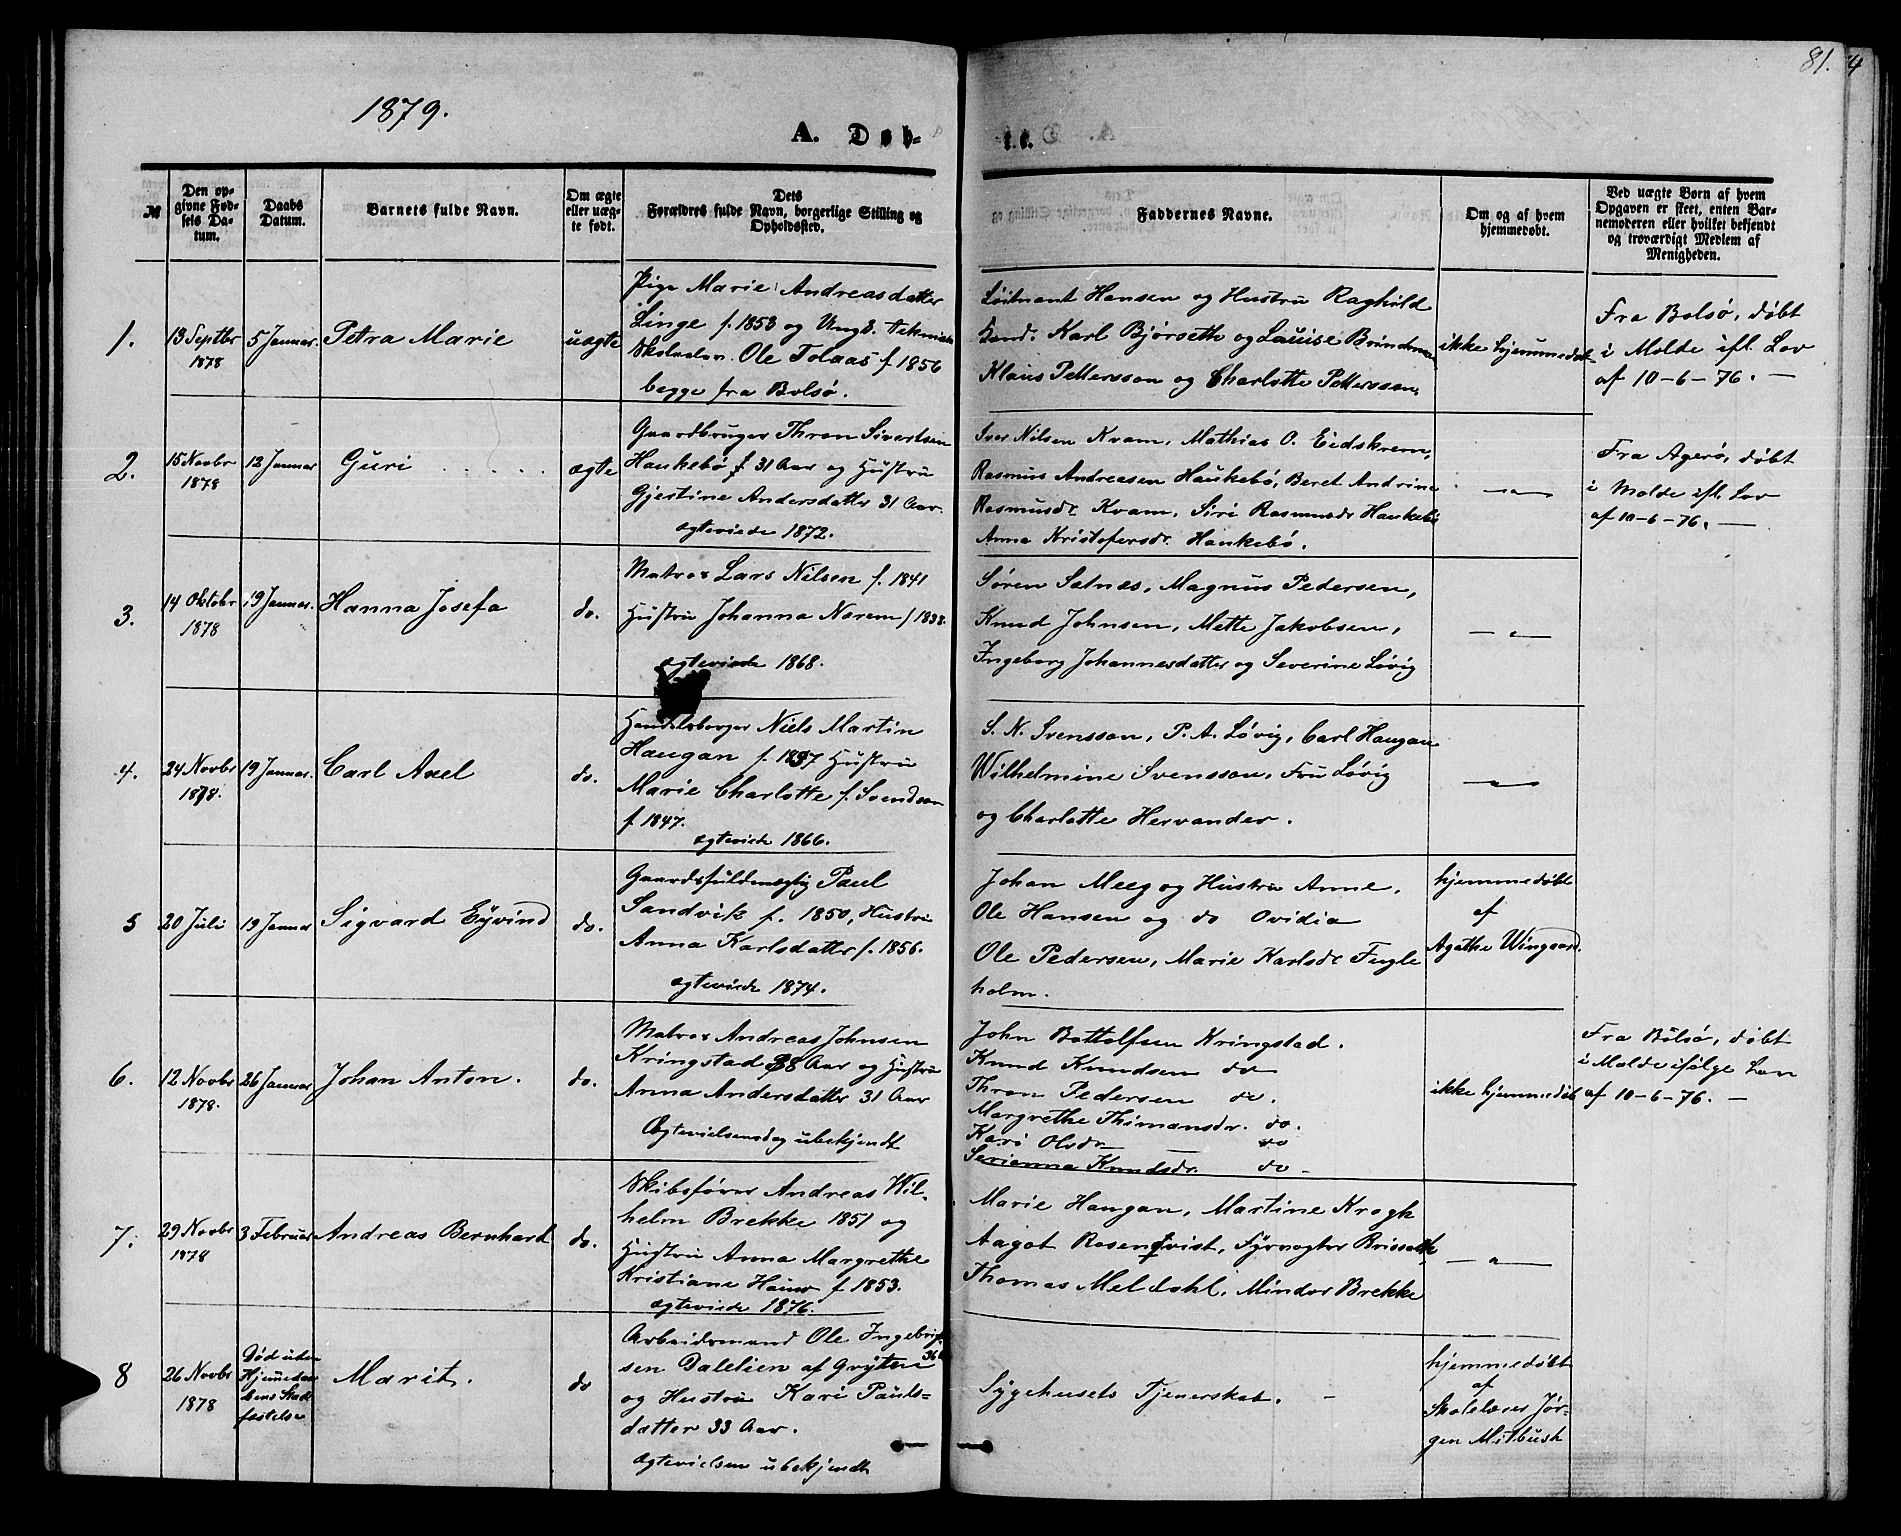 1879.
81.
A. Døb-
te.
№
Den op-
givne Fød-
sels Da-
tum.
Daabs
Datum.
Barnets fulde Navn.
Om ægte
eller uæg-
te født.
Dets
Forældres fulde Navn, borgerlige Stilling og
Opholdssted.
Faddernes Navne.
Om og af hvem
hjemmedøbt.
Ved uægte Børn af hvem
Opgaven er skeet, enten Bar-
nemoderen eller hvilket bekjendt
og troværdigt Medlem af
Menigheden.
1.
13 Septbr
1878
5 Januar.
Petra Marie
uægte
Pige Marie Andreasdatter
Linge f. 1853 og Ungk.
Ole Tolaas f 1856
begge fra Bolsø.
Løitnant Hansen og Hustru Raghild
Karl Bjørseth og Lauise
Klaus Pettersson og Charlotte Pettersson.
ikke hjemmedøbt
Fra Bolsø, døbt
i Molde ifl. Lov
af 10-6-76. -
2.
15 Novbr
1878
12 Januar
Guri
ægte
Gaardbruger Thron Sivertsen
Haukebø f 31 Aar og Hustru
Gjertine Andersdatter 31 Aar.
ægteviede 1872.
Iver Nilsen Kvam, Mathias O. Eidskrem,
Rasmus Andreasen Haukebø, Beret Andrine
Rasmusdr Kvam, Siri Rasmusdr Haukebø
Anna Kristofersdr. Haukebø.
-"-
Fra Agerø, døbt
i Molde ifl. Lov
af 10-6-76. -
3.
14 Oktobr
1878
19 Januar.
Hanna Josefa
do.
Matros Lars Nilsen f. 1841
Hustru Johanna Nerem f 1838.
ægteviede 1868.
Søren Sætnes, Magnus Pedersen,
Knud Johnsen, Mette Jakobsen,
Ingeborg Johannesdatter og Severine Løvig
-"-
4.
24 Novbr
1878.
19 Januar.
Carl Axel
do.
Handelsborger Niels Martin
Haugan f. 1837 Hustru
Marie Charlotte f. Svendsen
f. 1847.
ægteviede 1866.
S. N. Svensson, P. A. Løvig, Carl Haugan
Wilhelmine Svensson, Fru Løvig
og Charlotte Hervander.
-"-
5
20 Juli
19 Januar
Sigvard Eyvind
do.
Gaardsfuldmægtig Paul
Sandvik f. 1850, Hustru
Anna Karlsdatter f. 1856.
ægteviede 1874.
Johan Meeg og Hustru Anne,
Ole Hansen og do Ovidia
Ole Pedersen, Marie Karlsdr Fugle
holm.
hjemmedøbt
af
Agathe Wingaard.
6.
12 Novbr
1878.
26 Januar
Johan Anton.
do.
Matros Andreas Johnsen
Kringstad 38 Aar og Hustru
Anna Andersdatter 31 Aar
Ægtevielsensdag ubekjendt
John Bottolfsen Kringstad.
Knud Knudsen do
Thron Pedersen do.
Margrethe Thimansdr. do.
Kari Olsdr do
Serianna Knudsdr. do -
ikke hjemmedøbt
Fra Bolsø, døbt
i Molde ifølge Lov
af 10-6-76. -
7.
29 Novbr
1878
3 Februar
Andreas Bernhard
do.
Skibsfører Andreas Wil-
helm Brekke 1851 og
Hustru Anna Margrethe
Kristiane f 1853.
ægteviede 1876.
Marie Haugan, Martine Krogh
Aagot Rosenqvist, Fyrvogter
Thomas Meldahl, Mindor Brekke
-"-
8
26 Novbr
1878
Død uden
Hjemmedaa
bens Stad
fæstelse
Marit.
do
Arbeidsmand Ole Ingebrigt
sen Dalelien af Gryten 36
og Hustru Kari Pauls-
datter 33 Aar.
Ægtevielsen ubekjendt
Sygehusets Tjenerskab.
hjemmedøbt
af
Skolelærer Jør-
gen Mitbusk